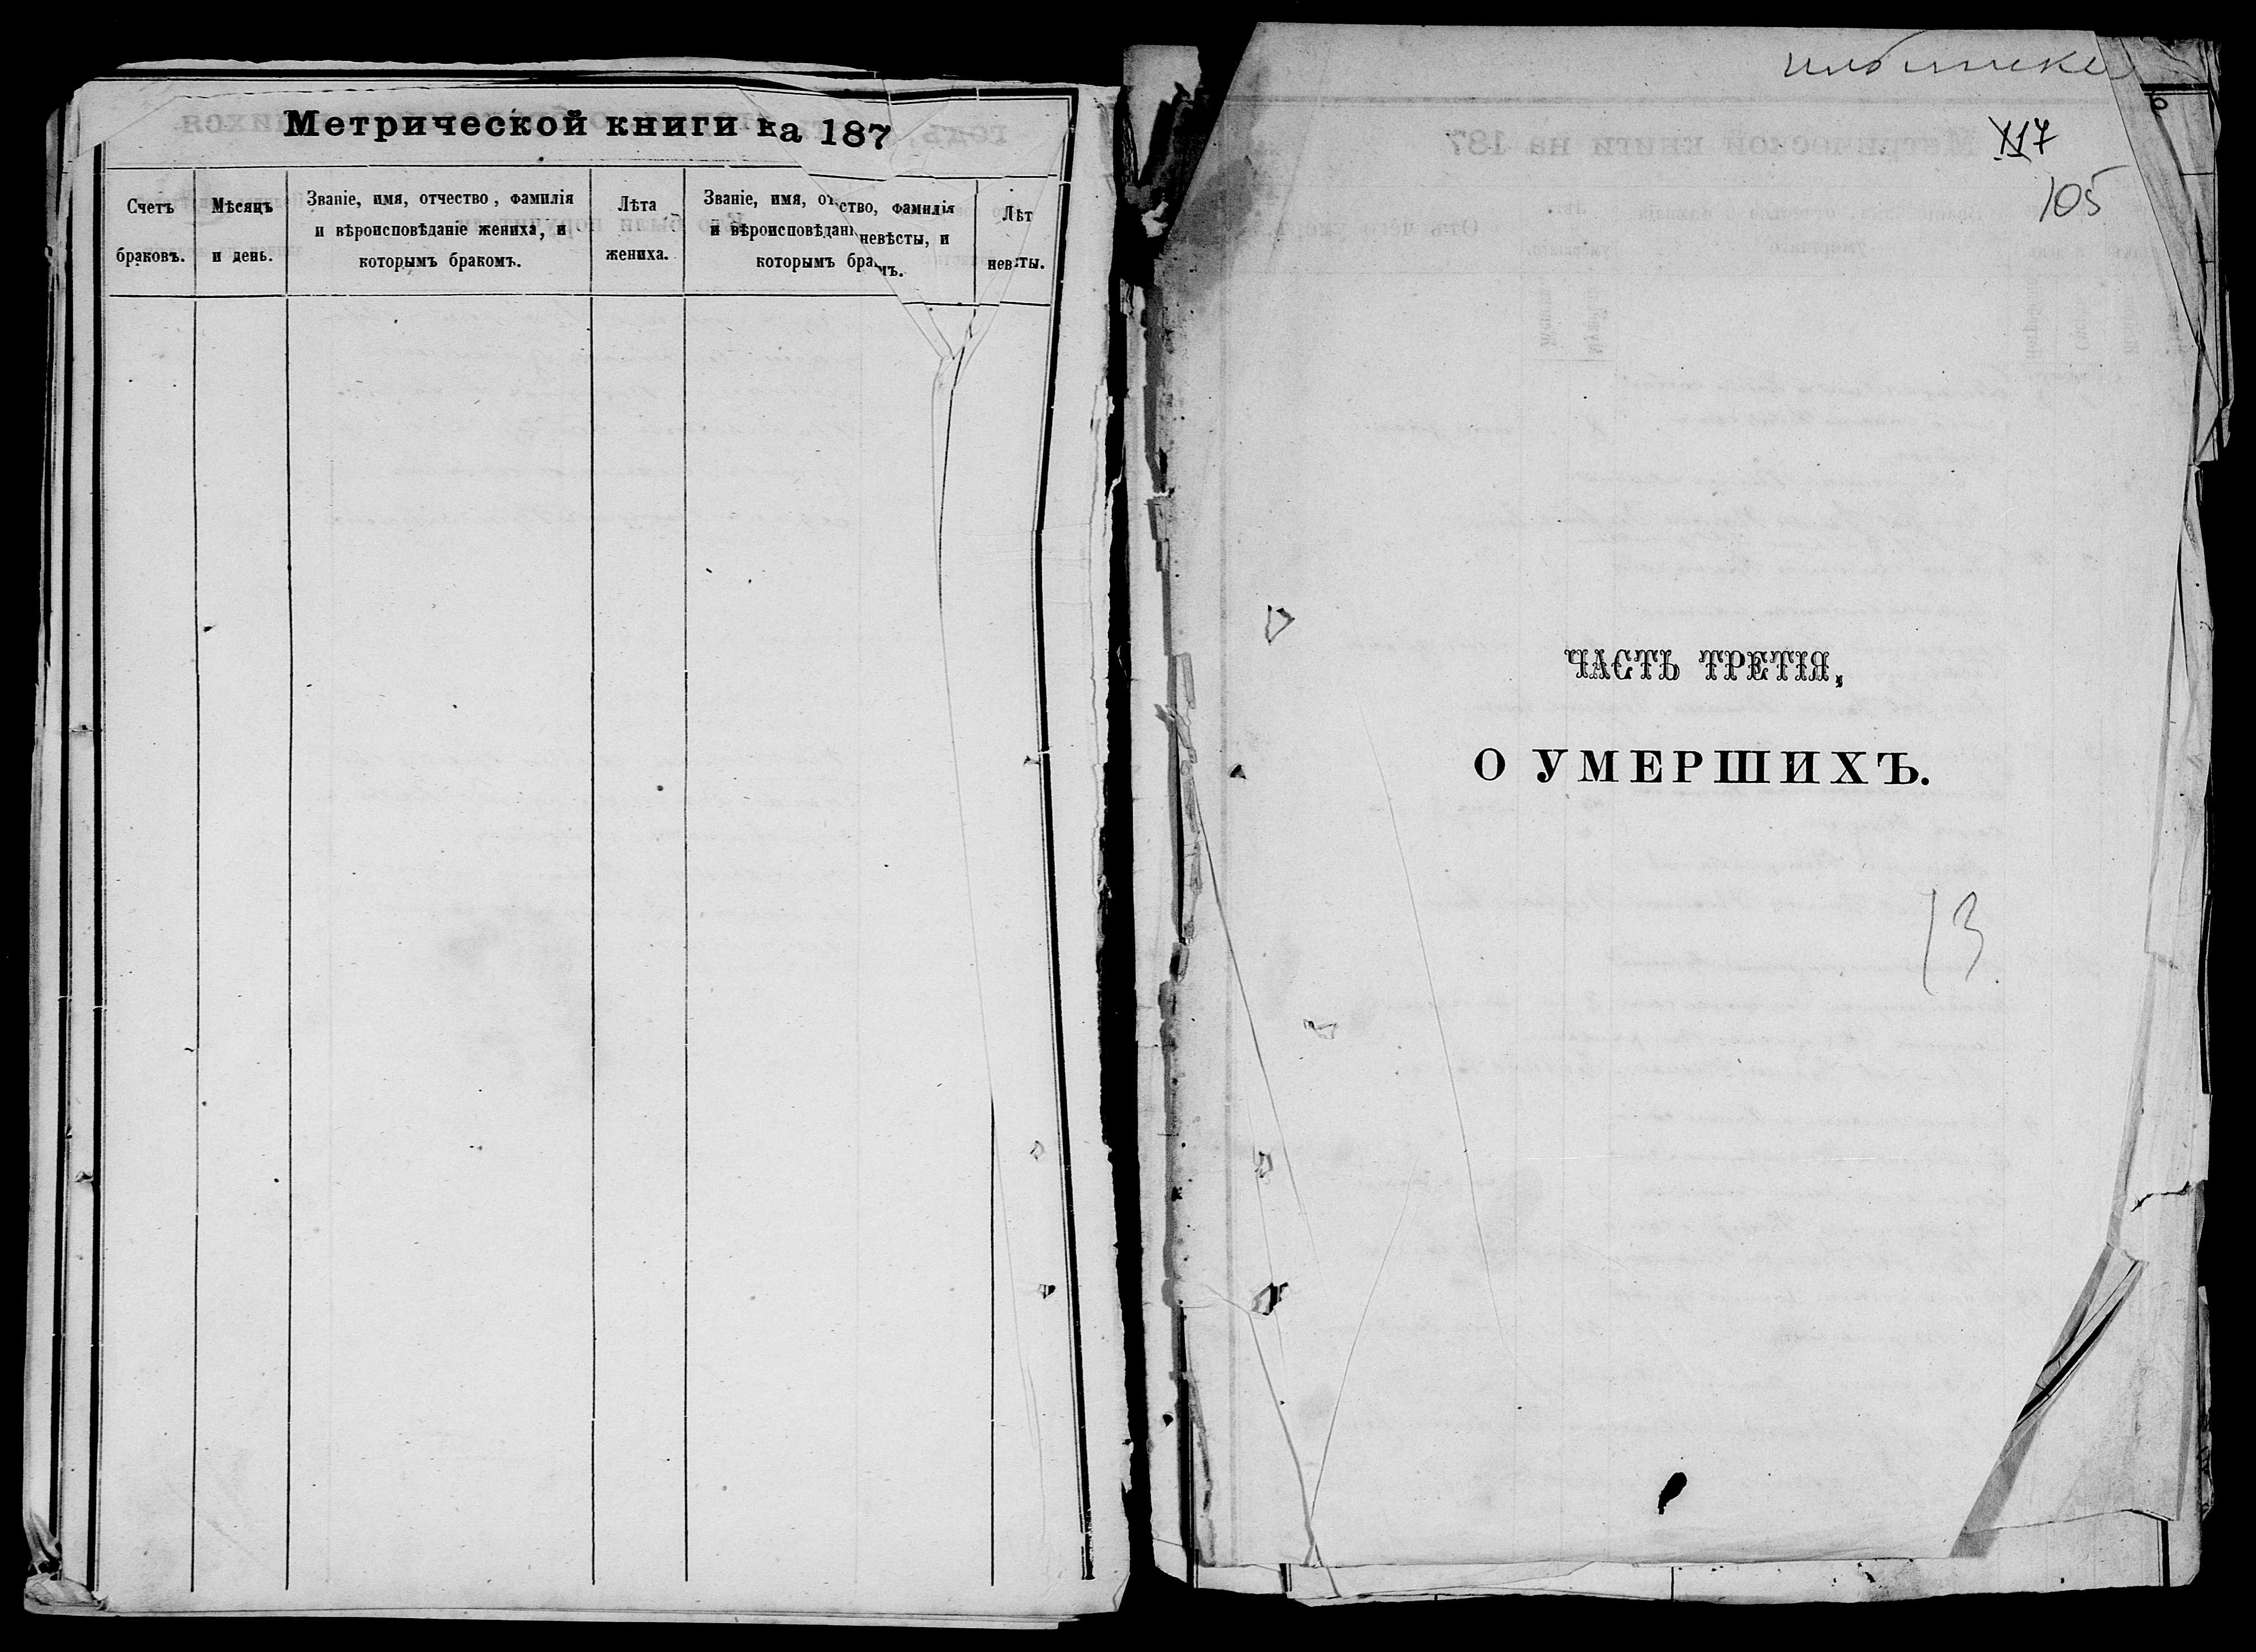 Метрической книги на 187
Счетъ браковъ.
Мѣсяцъ и день.
Званіе, имя, отчество, фамилія
и вѣроисповѣданіе жениха, и
которымъ бракомъ.
Лѣта
жениха.
Званіе, имя, отчество, фамилія
и вѣроисповѣданіе невѣсты, и
которымъ бракомъ.
Лѣт
невѣсты.
117
105
ЧАСТЬ ТРЕТІЯ,
О УМЕРШИХЪ.
13